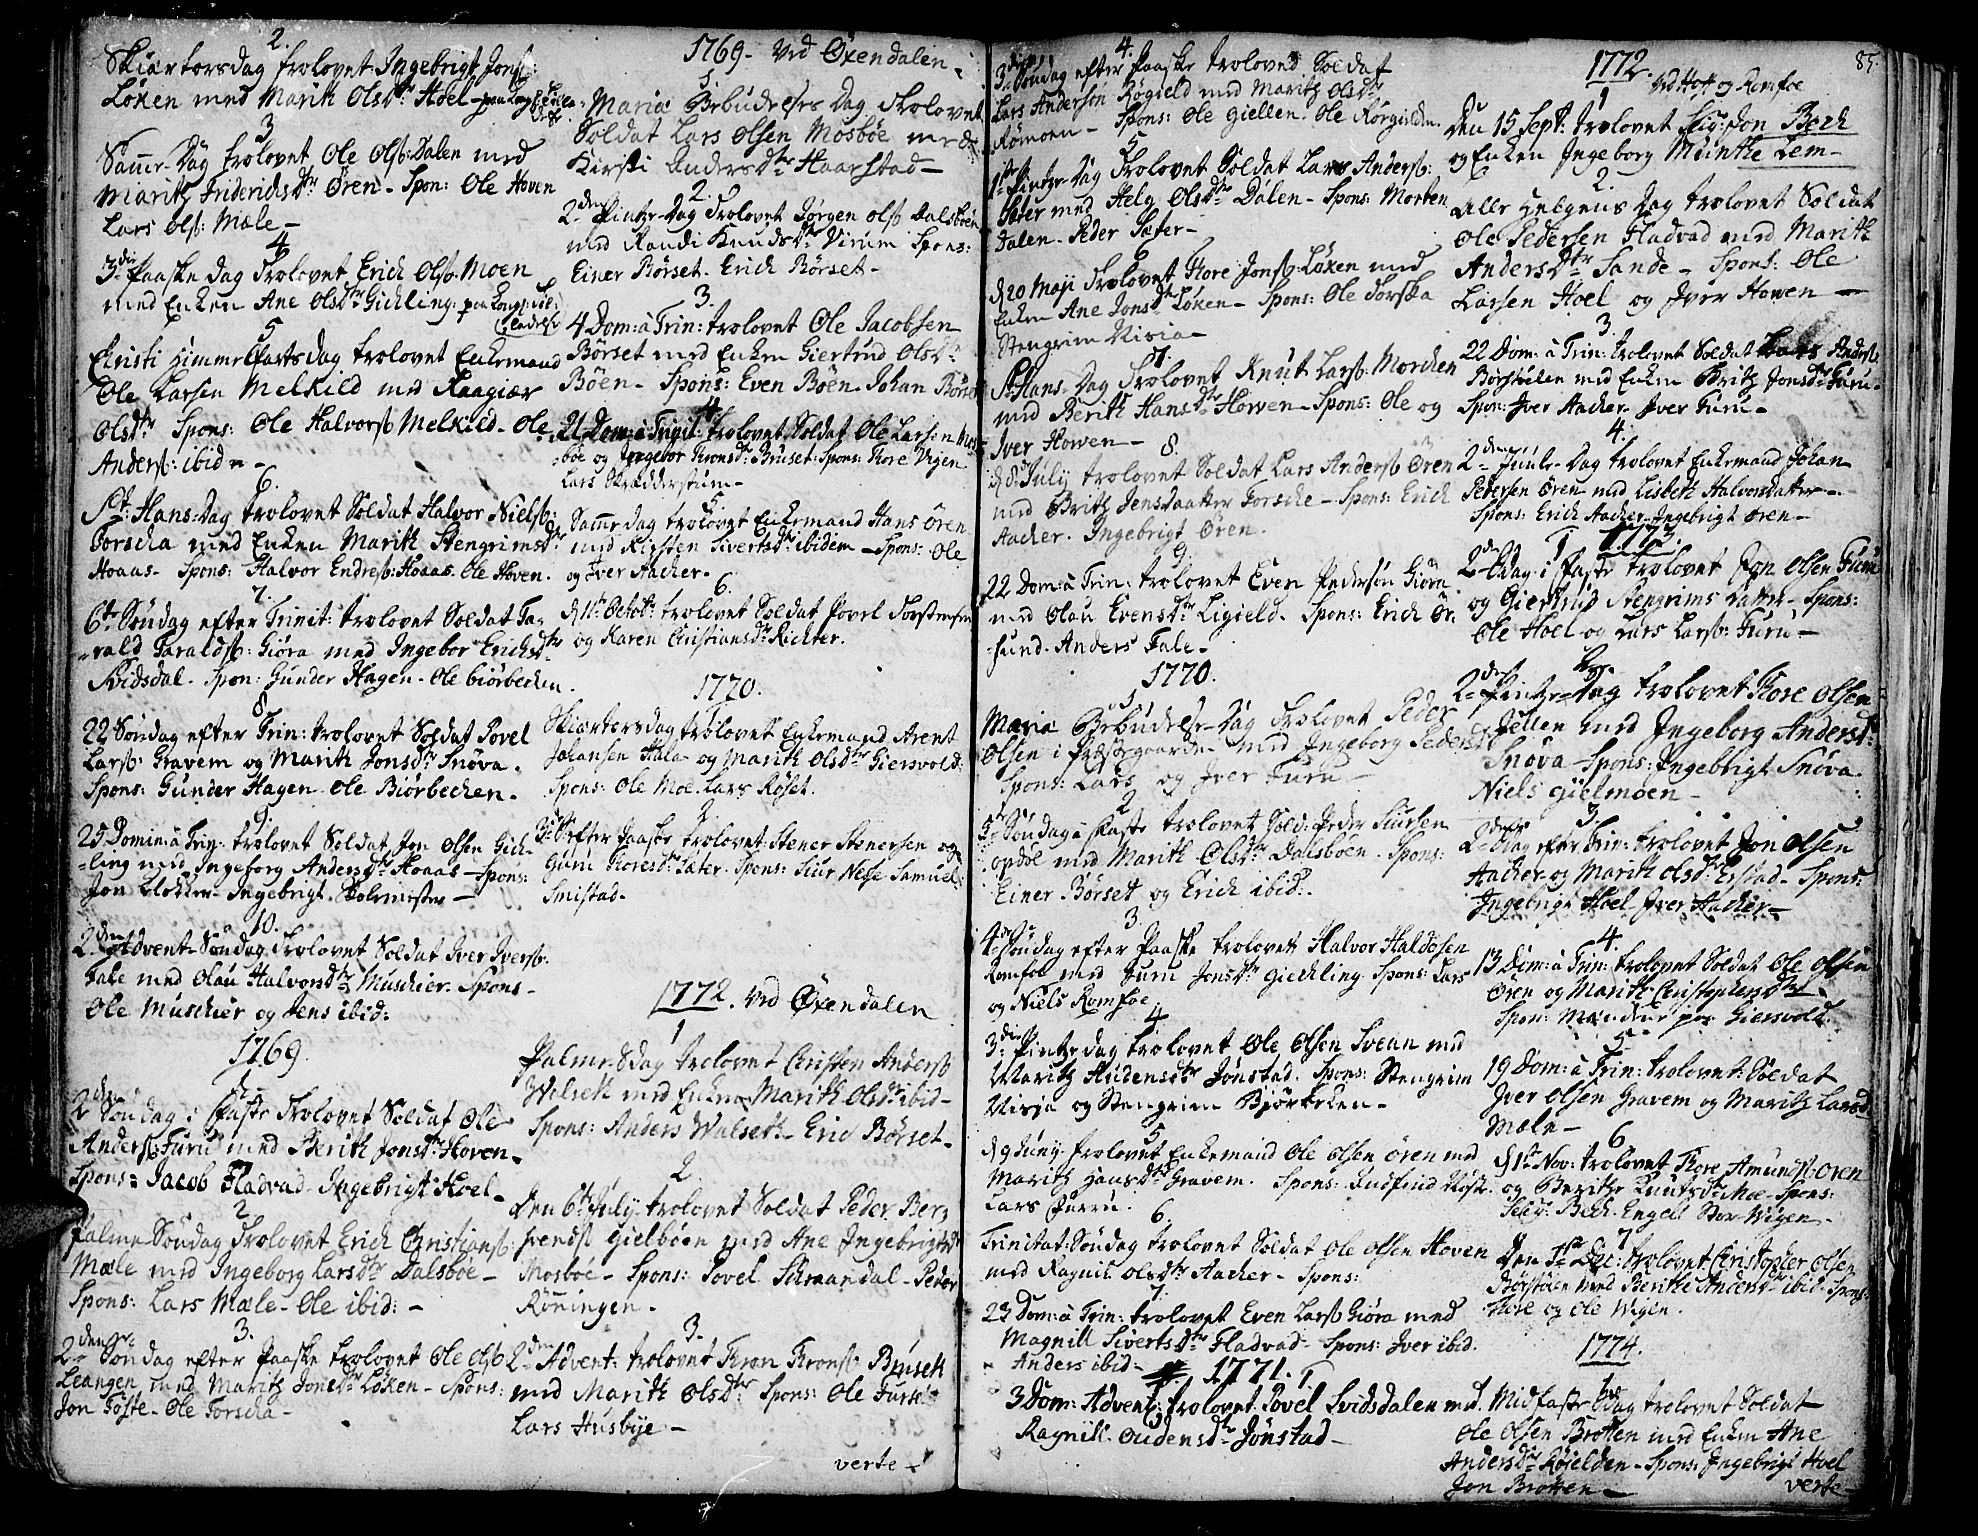 2.
Skiærtorsdag trolovet Ingebrigt Jons:
Löken med Marith Olsdtr Hoel
3
Samme Dag trolovet Ole Ols: Dalen med
Maritz Friderichsdtr Ören - Spon: Ole Hoven
Lars Ols: Mæle -
4
3die Paaske Dag Trolovet Erich Ols: Moen
med Enken Ane Olsdtr Gickling
5
Christi Himmelfarts dag trolovet Enkemand
Ole Larsen Melkild med Raagiær
Olsdtr Spons: Ole Halvors Melkild - Ole
Anders: ibid -
6.
St: Hans Dag trolovet Soldat Halvor Niels:
Forscha med Enken Marith Stengrimsdtr
Hoaas - Spons: Halvor Endres: Hoaas. Ole Hoven.
7.
6te Söndag efter Trinit: trolovet Soldat Ta-
rald Taralds: Giöra med Ingebor Erichsdtr
Svidsdal - Spon: Gunder Hagen - Ole Biörbechen.
8
22 Söndag efter Trin: trolovet Soldat Povel
Lars: Gravem og Marith Jonsdtr Snöva.
Spons: Gunder Hagen - Ole Biörbechen.
9.
25 Domin: à Trin: trolovet Soldat Jon Olsen Gick-
ling med Ingeborg Andersdtr Hoaas - Spons:
Jon Klokker - Ingebrigt Skolemester -
10.
2den Advent-Söndag Trolovet Soldat Iver Ivers:
Fale med Olau Halvorsdtr Muschier. Spons -
Ole Muschier og Jens ibid:
1769.
1.
2den Söndag i Faste Trolovet Soldat Ole
Anders: Furu med Berith Jonsdtr Hoven -
Spons: Jacob Fladvad - Ingebrigt Hoel -
2
Palme Söndag Trolovet Erich Christians:
Mæle med Ingeborg Larsdtr Dalsboe -
Spons: Lars Mæle - Ole ibid: -
3.
2den Söndag efter Paaske trolovet Ole Ols
Leangen med Maritz Jonsdtr Löken - Spons:
Jon Töfte - Ole Forscha -
1769 - ved Öxendalen -
1.
Mariæ Bebudelses Dag Trolovet
Soldat Lars Olsen Mosböe med
Kirsti Andersdtr Haarstad -
2.
2den Pintze-Dag Trolovet Jörgen Ols Dalsböen
med Randi Knudsdtr Virum Spons:
Einer Börset - Erich Börset -
3.
4 Dom: à Trin: trolovet Ole Jacobsen
Börset med Enken Giertrud Olsdtr
Böen - Spons: Even Böen - Johan Börset
4.
21 Dom: à Trinit: trolovet Soldat Ole Larsen Mos-
böe og Ingebor Tronsdtr Bruset Spons: Tore Vigen
Lars Skrædderstuen -
5.
Samme dag trolovet Enkemand Hans Ören
med Kirsten Sivertsdtr ibidem - Spons: Ole
og Iver Aacher.
6.
d 11te Octobr: trolovet Soldat Povel Torstensen
og Karen Christiansdtr Richter.
1770.
1
Skiærtorsdag trolovet Enkemand Arent
Johansen Hala og Marith Olsdtr Giersvold:
Spons: Ole Moe. Lars Röset.
2
3die S: efter Paaske trolovet Stener Stenersen og
Guru Toresdtr Sæter. Spons: Siur Nesse. Samuel
Smistad -
1772. Ved Öxendalen
1
Palme-Sdag trolovet Christen Anders
Welseth med Enken Marith Olsdtr ibid -
Spons: Anders Walseth - Eric Börset -
2
Den 6te July trolovet Soldat Peder Ber-
svends Gielböen med Ane Ingebrigtsdtr
Mosböe - Spons: Povel - Peder
Röningen -
3.
2den Advent: trolovet Tron Trons Bruseth
med Marith Olsdtr Spons: Ole Furu
Lars Husbye -
verte -
4.
3die Söndag efter Paaske trolovet Soldat
Lars Andersön Rögield med Maritz Olsdtr
Römoen - Spons: Ole Giellen. Ole Rörgielden.
5
1ste Pintze-Dag Trolovet Soldat Lars Anders:
Sæter med Helg Olsdtr Dalen - Spons: Morten
Dalen - Peder Sæter -
6
d 20 Maji Trolovet Tore Jons: Löken med
Enken Ane Jonsdtr Löken - Spons: Ole Forska
Stengrim Nisia -
7.
St Hans-Dag Trolovet Knut Lars: Morchen
med Berith Hansdtr Howen - Spons: Ole og
Iver Howen -
8.
d 8de July trolovet Soldat Lars Anders Ören
med Brith Jensdaatter Forsche - Spons: Erich
Aacher. Ingebrigt Ören.
9.
22 Dom: à Trin: trolovet Even Pedersön Giöra
med Olau Evensdtr Ligield. Spons: Erich Ör-
sund - Anders Fale -
1770.
1
Mariæ Bebudelse-Dag Trolovet Peder
Olsen i Præstgaarden med Ingeborg Pedersdtr
Spons: Lars og Iver Furu -
2
3die Söndag i Faste trolovet Sold: Peder Siursen
opdöl med Marith Olsdtr Dalsböen. Spons:
Einer Börsett og Erich ibid:
3
4de Söndag efter Paaske trolovet Halvor Haldosen
Romfoe med Guru Jonsdtr Gickling Spons: Lars
og Niels Romfoe.
4
3die Pintze dag trolovet Ole Olsen Svean med
Maritz Audensdtr Jönstad. Spons: Stengrim
Nisja og Stengrim Björbeken -
5
d 9 Juny trolovet Enkemand Ole Olsen Ören med
Maritz Hansdtr Gravem. Spons: Gudfind Röste.
Lars Furru.
6.
Trinitat: Söndag trolovet Soldat Ole Olsen Hoven
med Ragnil Olsdtr Aacher - Spons:
7.
23 Dom: à Trin: trolovet Even Lars Giöra med
Magnill Sivertsdtr Fladvad - Spons: Iver ibid.
Anders ibid -
1771. 1
3 Dom: Advent: trolovet Povel Svidsdalen med
Ragnill Oudensdtr Jönstad -
85.
1772.
Ved Hof og Romfoe
1
Den 15 Sept: trolovet Sig: Jon Bech
og Enken Ingeborg Munthe Lem -
2.
Alle Helgens Dag trolovet Soldat
Ole Pedersen Fladvad med Marith
Andersdtr Sande - Spons: Ole
Larsen Hoel og Iver Howen -
3.
22 Dom: à Trin: trolovet Soldat Lars Anders
Börstölen med Enken Brith Jonsdtr Furu -
Spon: Iver Aacher. Iver Furu -
4.
2den Juule-Dag trolovet Enkemand Johan
Petersen Ören med Lisbeth Halvorsdatter -
Spons: Erich Aacher - Ingebrigt Ören -
1 1773.
2den Sdag i Faste trolovet Jon Olsen Furu
og Giertrud Stengrims Datter - Spons:
Ole Hoel og Lars Lars: Furu -
2.
2den Pintze-Dag trolovet Tore Olsen
Jellen med Ingeborg Andersdtr
Snöva - Spons: Ingebrigt Snöva.
Niels Gielmöen -
3.
2den Sdag efter Trin: trolovet Jon Olsen
Aacher og Marith Olsdtr Erstad - Spons:
Ingebrigt Hoel - Iver Aacher -
4.
13 Dom: à Trin: trolovet Soldat Ole Olsen
Ören og Marith Christophersdtr
Spon: Mændene paa Giersvold.
5.
19 Dom: à Trin: trolovet Soldat
Iver Olsen Gravem og Maritz Larsd
Mæle -
6
d 1ste Nov: trolovet Tore Amunds Ören
og Berithe Knutsdtr Moe - Spons:
Bech. Engel Stor-Wigen -
7
Den 1ste Dec: trolovet Christopher Olsen
Börstölen med Berithe Andersdtr ibid. Spons:
Tore og Ole Wigen.
1774.
1.
Midfaste Sdag trolovet Soldat
Ole Olsen Brotten med Enken Ane
Andersdtr Röielden - Spons: Ingebrigt Hoel
Jon Brotten -
verte -